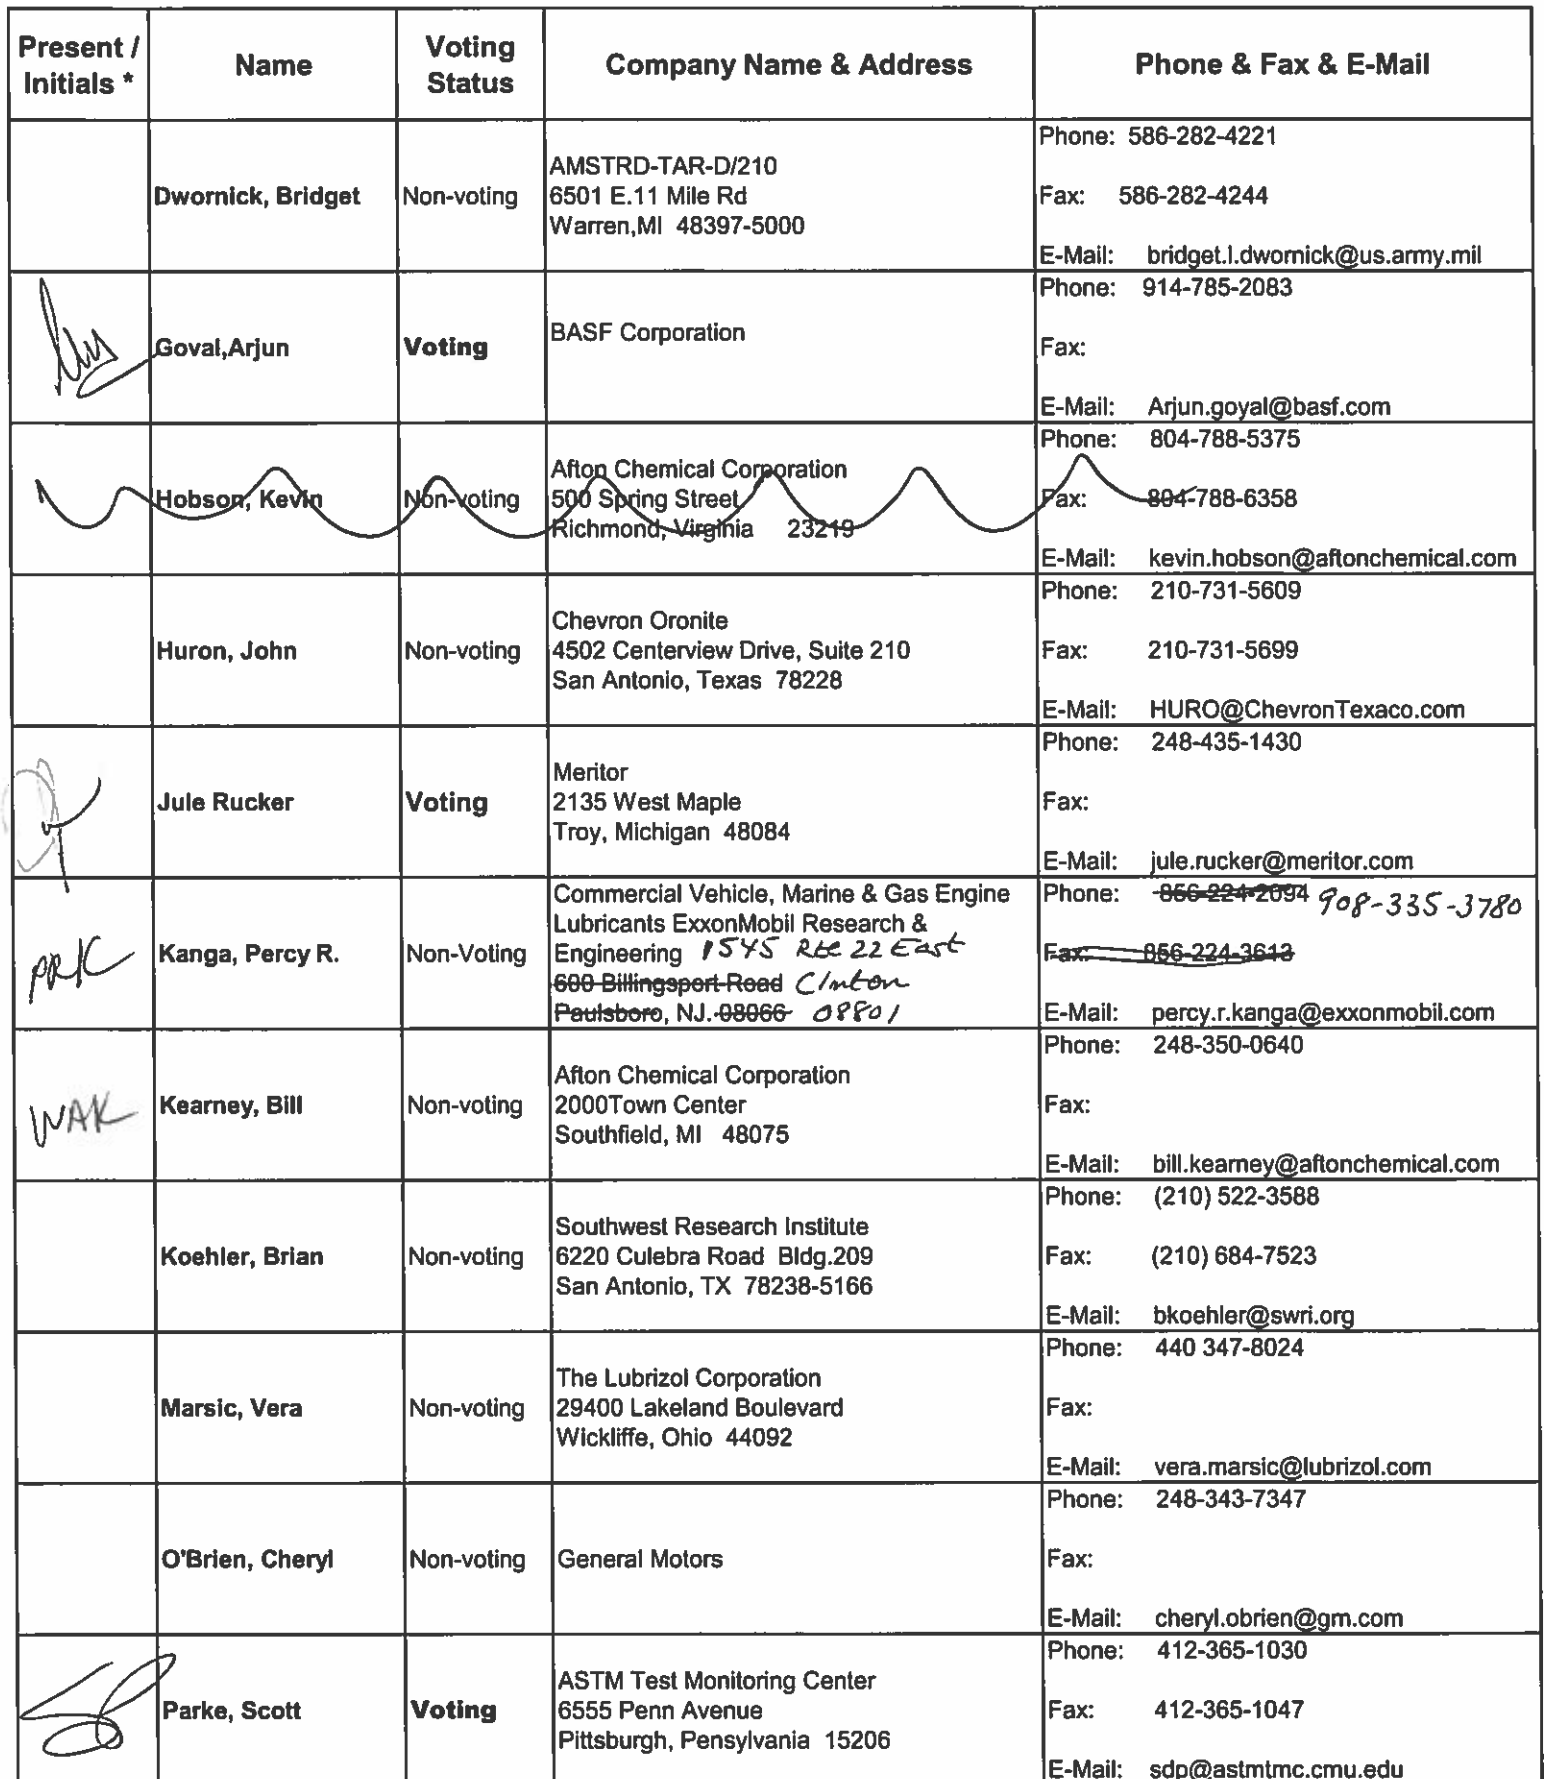 Present / Initials * Name Voting Status Company Name & Address Phone & Fax & E-Mail
Dwornick, Bridget Non-voting
AMSTRD-TAR-D/210
6501 E.11 Mile Rd
Warren,MI 48397-5000
Phone: 586-282-4221
Fax: 586-282-4244
E-Mail: bridget.l.dwornick@us.army.mil
Goval,Arjun Voting
BASF Corporation
Phone: 914-785-2083
Fax:
E-Mail: Arjun.goyal@basf.com
Hobson, Kevin Non-voting
Afton Chemical Corporation
500 Spring Street
Richmond, Virginia 23219
Phone: 804-788-5375
Fax: 804-788-6358
E-Mail: kevin.hobson@aftonchemical.com
Huron, John Non-voting
Chevron Oronite
4502 Centerview Drive, Suite 210
San Antonio, Texas 78228
Phone: 210-731-5609
Fax: 210-731-5699
E-Mail: HURO@ChevronTexaco.com
Jule Rucker Voting
Meritor
2135 West Maple
Troy, Michigan 48084
Phone: 248-435-1430
Fax:
E-Mail: jule.rucker@meritor.com
PRK Kanga, Percy R. Non-Voting
Commercial Vehicle, Marine & Gas Engine
Lubricants ExxonMobil Research &
Engineering 1545 Rte 22 East
600 Billingsport Road Clinton
Paulsboro, NJ. 08066 08801
Phone: 856-224-2094 908-335-3780
Fax: 856-224-3613
E-Mail: percy.r.kanga@exxonmobil.com
WAK Kearney, Bill Non-voting
Afton Chemical Corporation
2000Town Center
Southfield, MI 48075
Phone: 248-350-0640
Fax:
E-Mail: bill.kearney@aftonchemical.com
Koehler, Brian Non-voting
Southwest Research Institute
6220 Culebra Road Bldg.209
San Antonio, TX 78238-5166
Phone: (210) 522-3588
Fax: (210) 684-7523
E-Mail: bkoehler@swri.org
Marsic, Vera Non-voting
The Lubrizol Corporation
29400 Lakeland Boulevard
Wickliffe, Ohio 44092
Phone: 440 347-8024
Fax:
E-Mail: vera.marsic@lubrizol.com
O'Brien, Cheryl Non-voting
General Motors
Phone: 248-343-7347
Fax:
E-Mail: cheryl.obrien@gm.com
Parke, Scott Voting
ASTM Test Monitoring Center
6555 Penn Avenue
Pittsburgh, Pensylvania 15206
Phone: 412-365-1030
Fax: 412-365-1047
E-Mail: sdp@astmtmc.cmu.edu